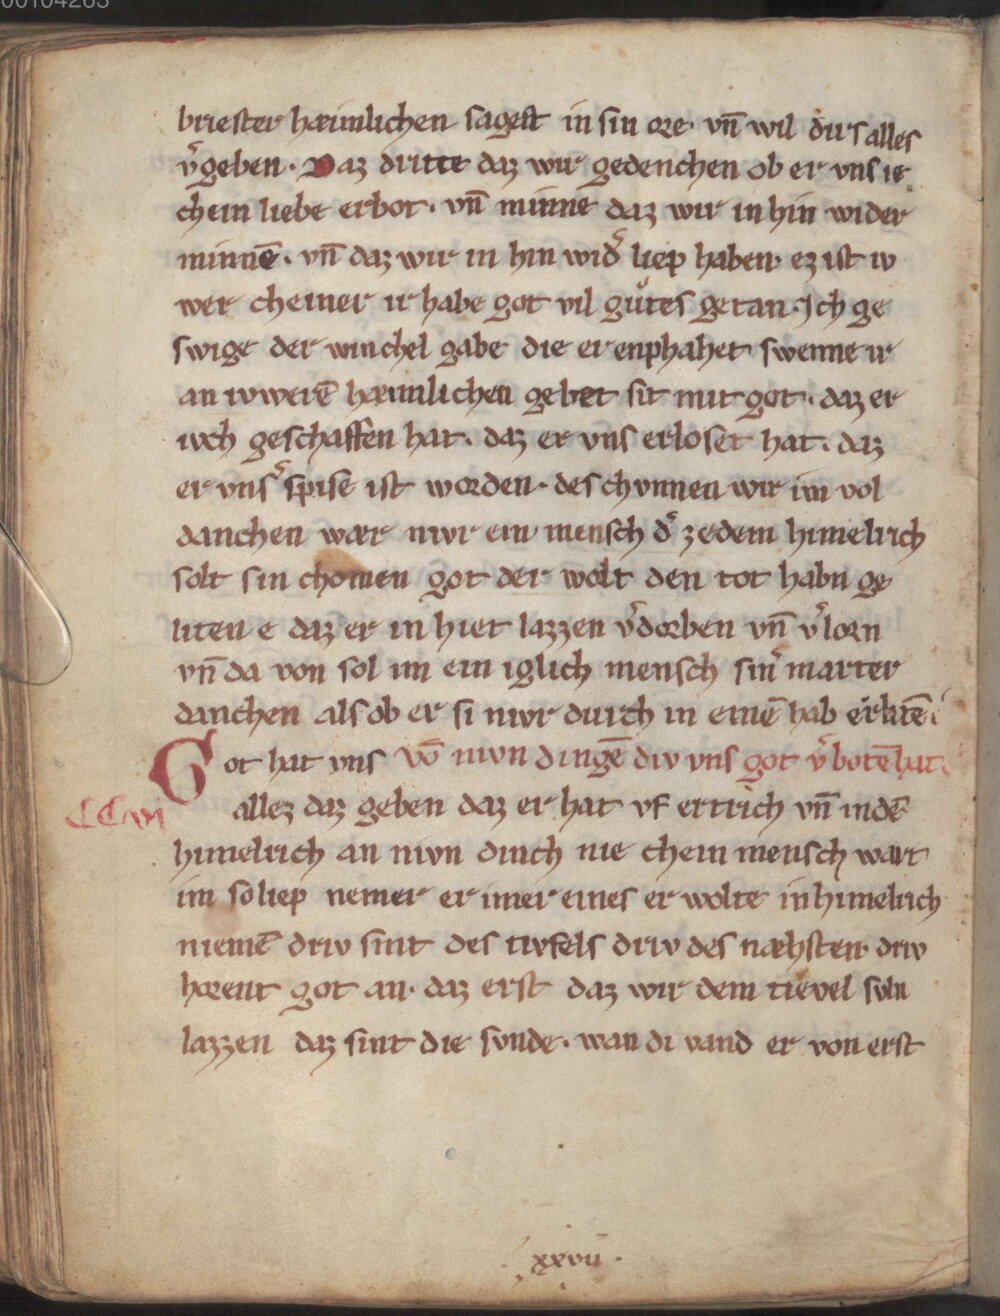 00104263
briester hæimlichen sagest in sin ore· vn̄ wil dirs alles
v͛geben· Daz dritte daz wir gedenchen ob er vns ie
chein liebe erbot· vn̄ minne daz wir in hin wider
minnē· vn̄ daz wir in hin wid͛ liep haben· ez ist iv
wer cheiner ir habe got vil guͤtes getan· Ich ge
swige der winchel gabe die er enphahet swenne ir
an iwwerē hæimlichen gebet sit mit got· daz er
ivch geschaffen hat· daz er vns erloset hat· daz
er vns͛ spise ist worden· des chvnnen wir im vol
danchen wær niwr ein mensch d͛ ze dem himelrich
solt sin chomen got der wolt den tot habn ge
liten e daz er in hiet lazzen v͛dorben vn̄ v͛lorn
vn̄ da von sol im ein iglich mensch sin͛ marter
danchen als ob er si niwr durch in einē hab erlitē·
Got hat vns Vō nivn dingē div vns got v͛botē hat·
CCxvi
allez daz geben daz er hat vf ertrich vn̄ in dē
himelrich an nivn dinch nie chein mensch wart
im so liep nemer er imer eines er wolte in himelrich
niemē driv sint des tivfels driv des næhsten· driv
horent got an· daz erst daz wir dem tievel svln
lazzen daz sint die svnde· wan di vand er von erst
xxvii·